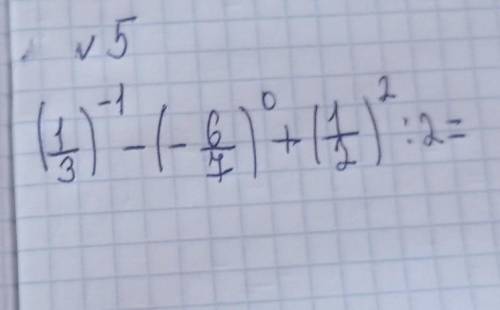 √5
(1/3)^-1 - (-6/7)^0 + (1/2)^2 : 2 =